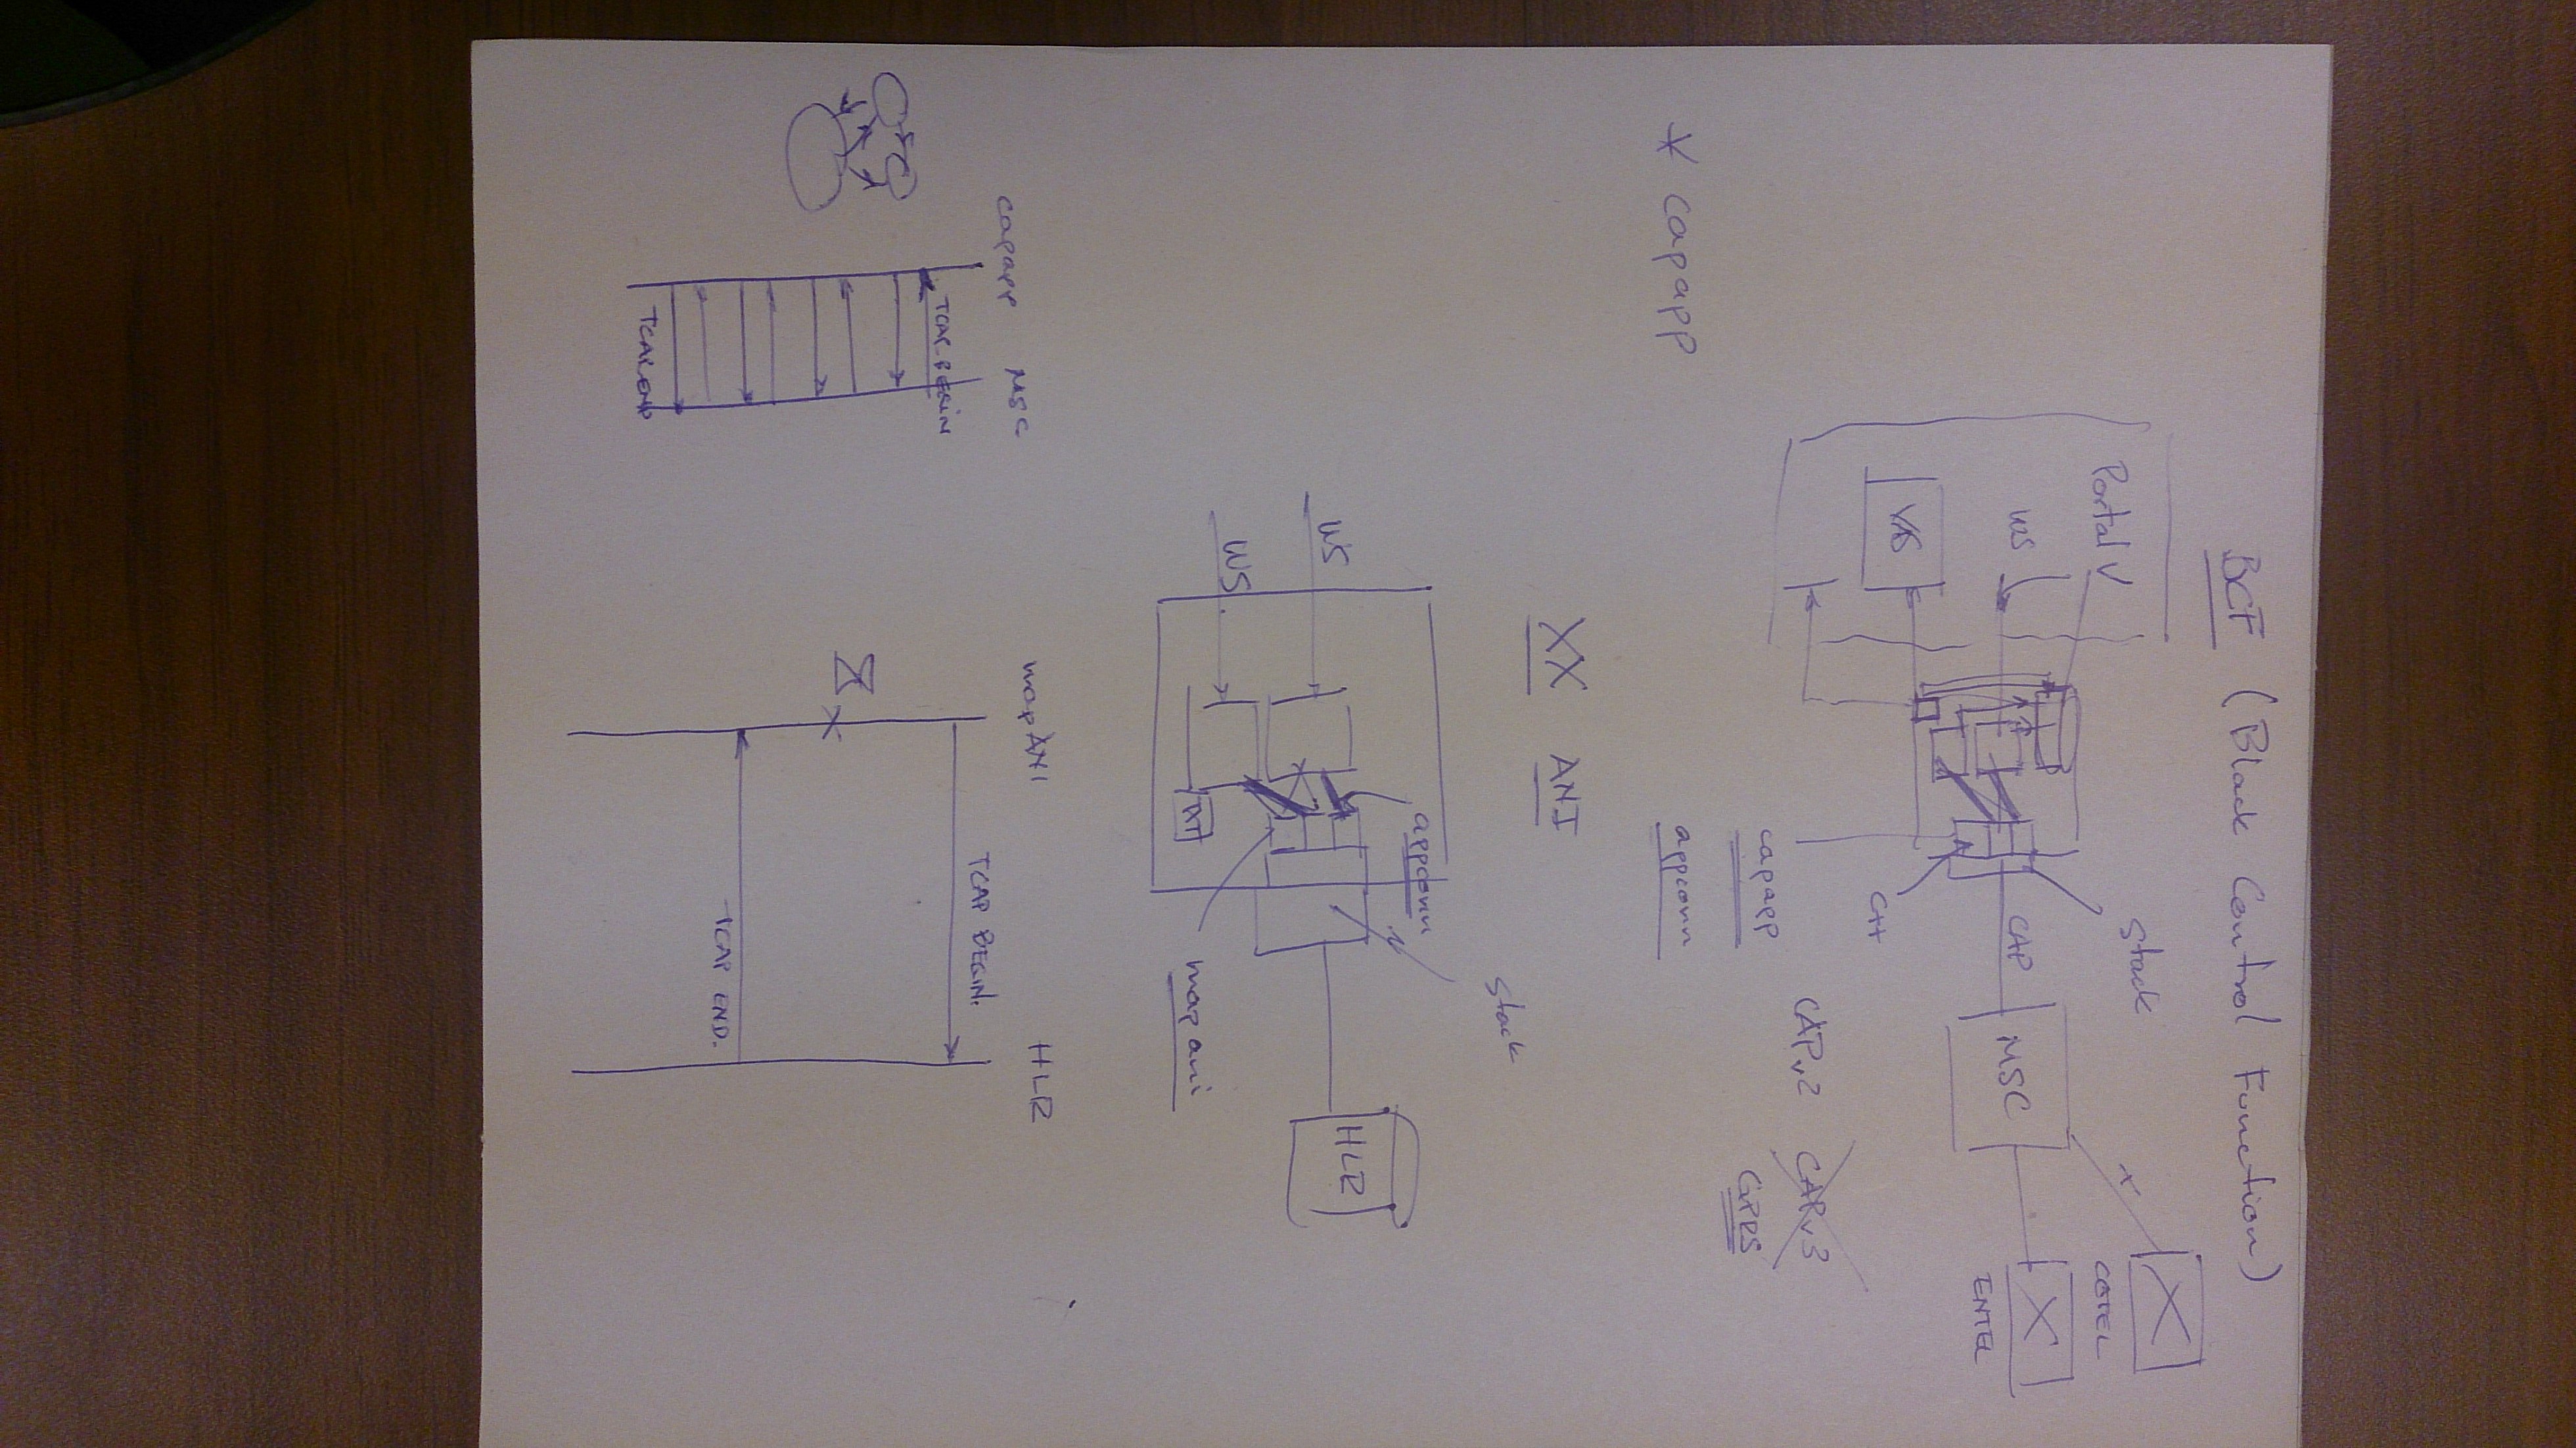 BCF (Black Control Function)
Portal V
WS
VAS
Stack
CAP
MSC
X
COTEL
X
ENTEL
capapp
appconn
CAPv2
CAPv3
GPRS
* capapp
XX ANI
WS
WS
TXT
appconn
Stack
map ani
HLR
capapp MSC
TCAP BEGIN
TCAP END
mapANI HLR
TCAP BEGIN.
TCAP END.